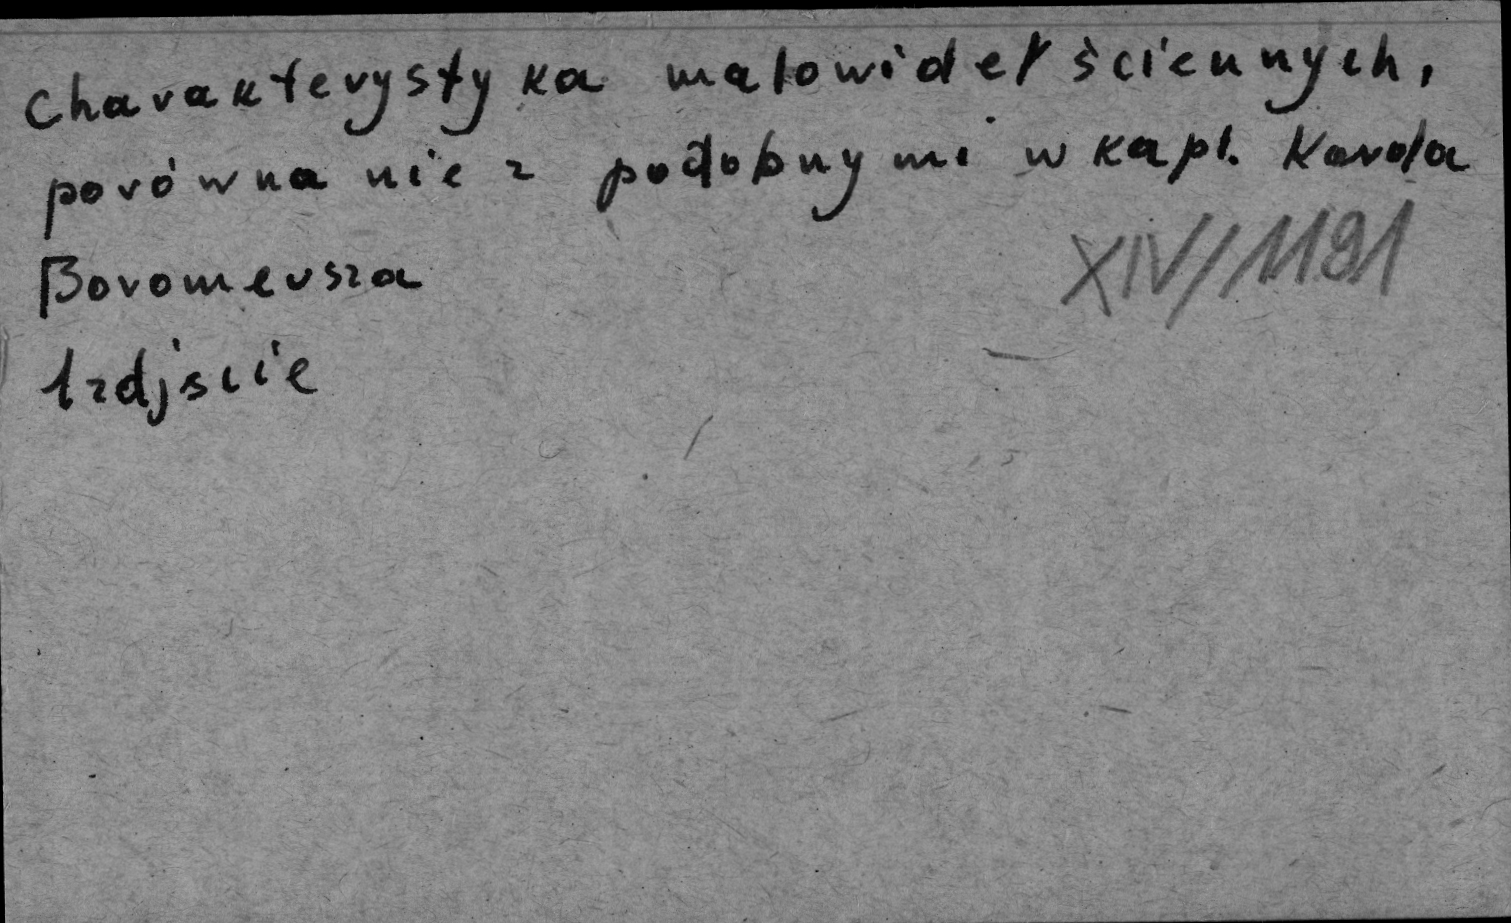 Charakterystyka malowideł ściennych,
porównanie z podobnymi w kapl. Karola
Boromeusza
XIV/1191
1 zdjście